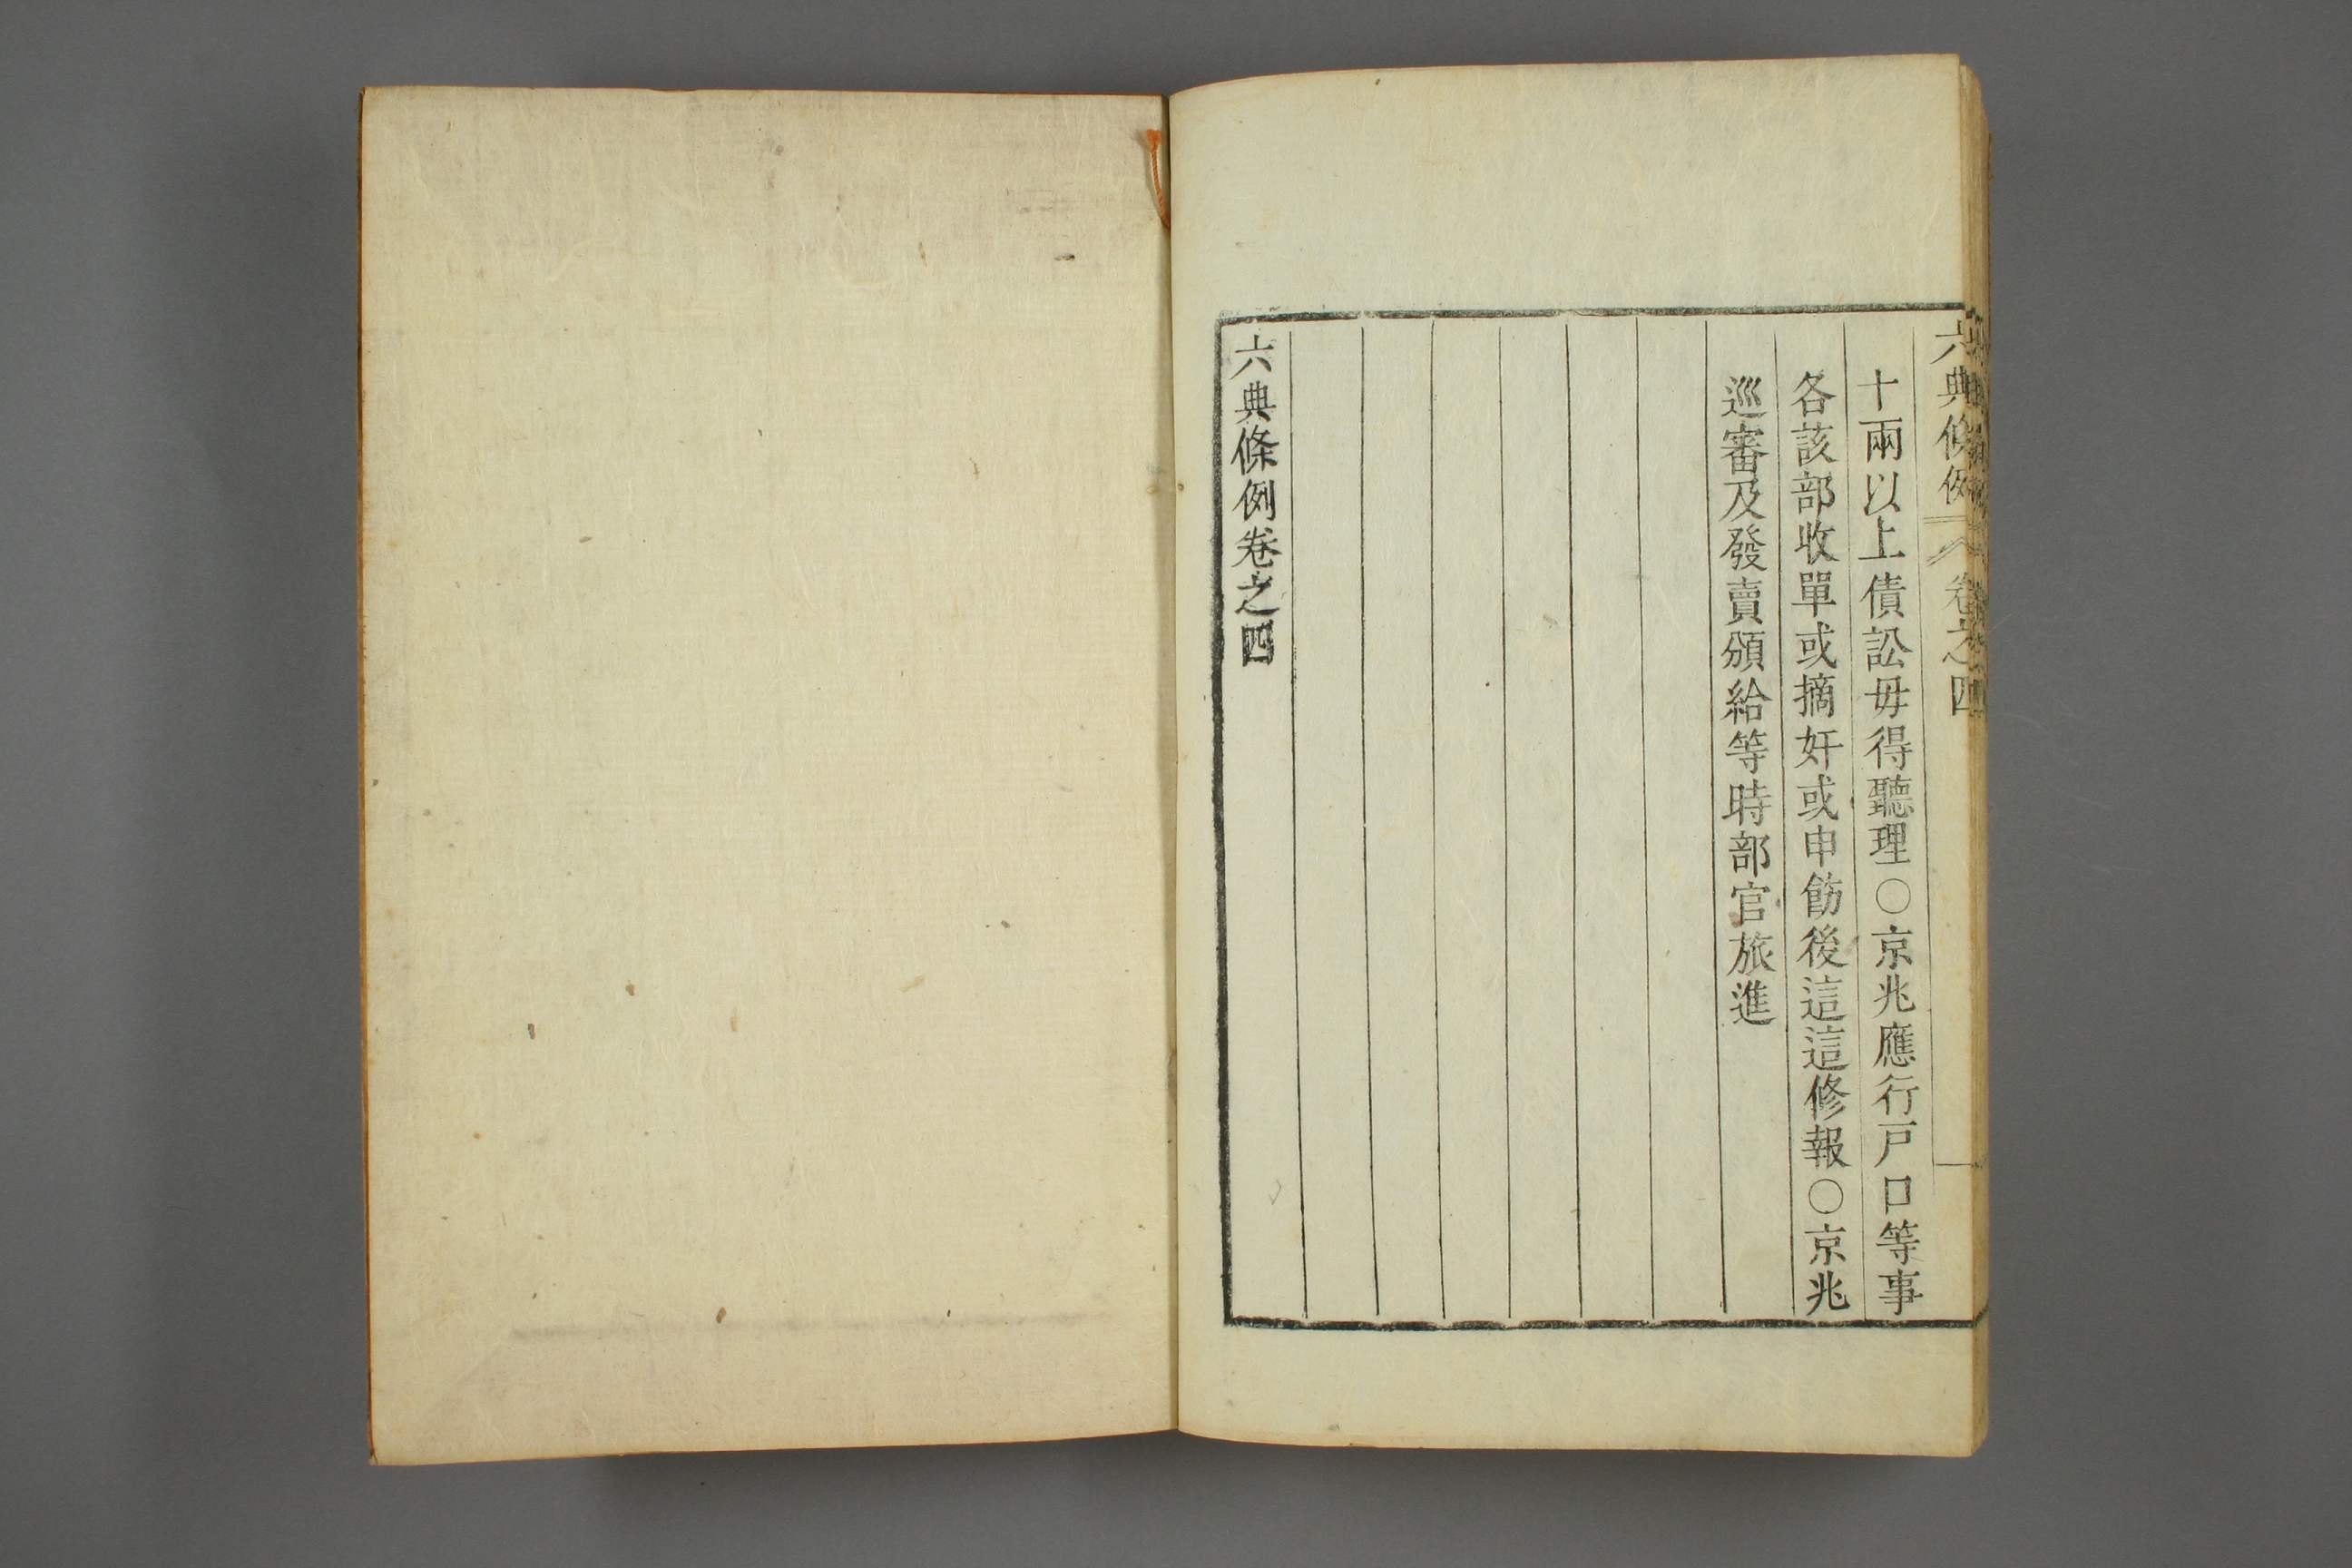 六典條例 卷之四
十兩以上債訟毋得聽理○京兆應行戶口等事
各該部收單或摘奸或申飭後這這修報○京兆
巡審及發賣頒給等時部官旅進
六典條例卷之四